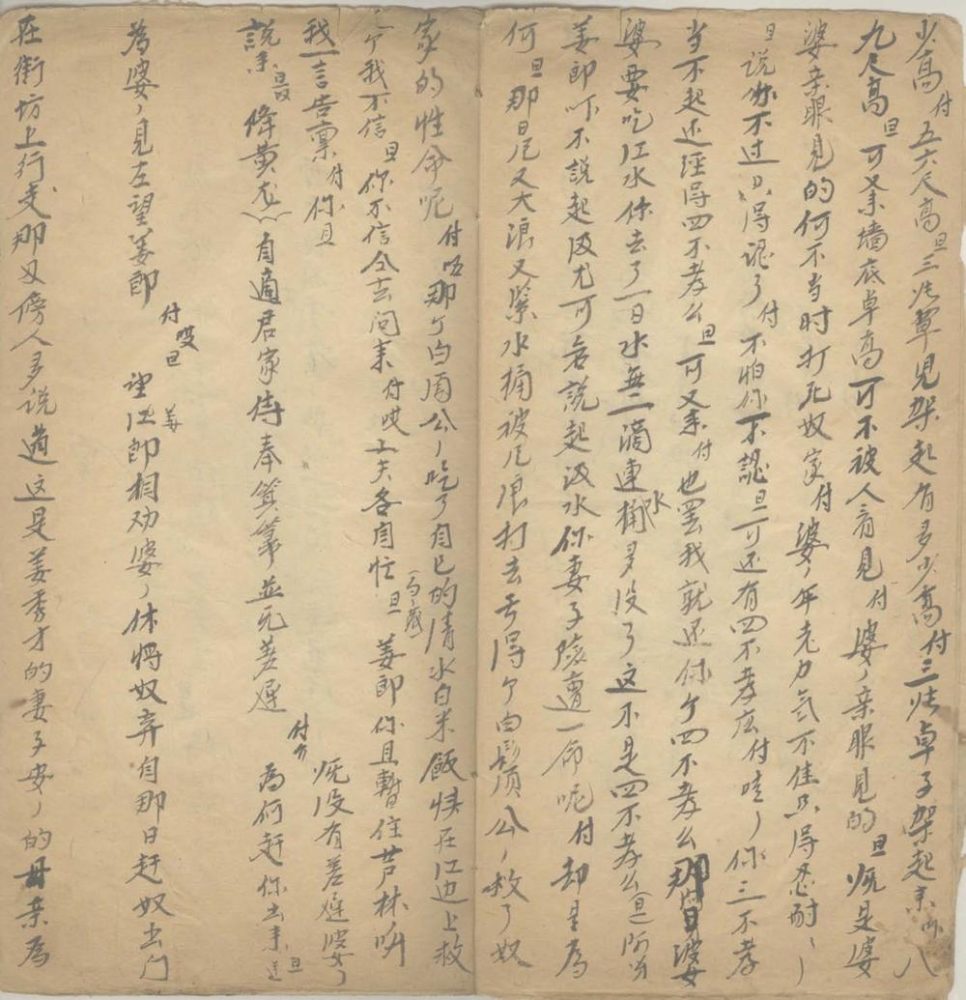 少高付五六尺高旦三張草児架起有多少高付三张卓子架起来八
九尺高旦可又来墙底卓高可不被人看见付婆婆亲眼見的旦既是婆
婆亲眼見的何不当时打死奴家付婆婆年老力気不佳只得忍耐忍耐
旦说你不过只得認了付不怕你不認旦可还有四不孝庅付哇哇你三不孝
当不起还经得四不孝么旦可又来付也罢我就还你个四不孝么那日婆
婆要吃江水你去了一日水無一滴連水桶多没了这不是四不孝么旦阿呀
姜郎吓不説起汲尤可若説起汲水你妻子險遭一命呢付却是為
何旦那日風又大浪又緊水桶被風浪打去亏得个白鬍鬚公公救了奴
家的性命呢付唔那个白鬚公公吃了自己的清水白米飯快在江边上救
个我不信旦你不信仝去问来付哎工夫各自忙旦姜郎你且暫住芦林听
我一言告禀付你且
既没有差遲婆婆
説来旦唱降黄龙自適君家侍奉箕箒並无差遲付介為何赶你出来旦
為婆婆見左望姜郎付哎旦望姜郎相劝婆婆休将奴弃自那日赶奴出门
在街坊上行走那又傍人多说道这是姜秀才的妻子安安的母亲為